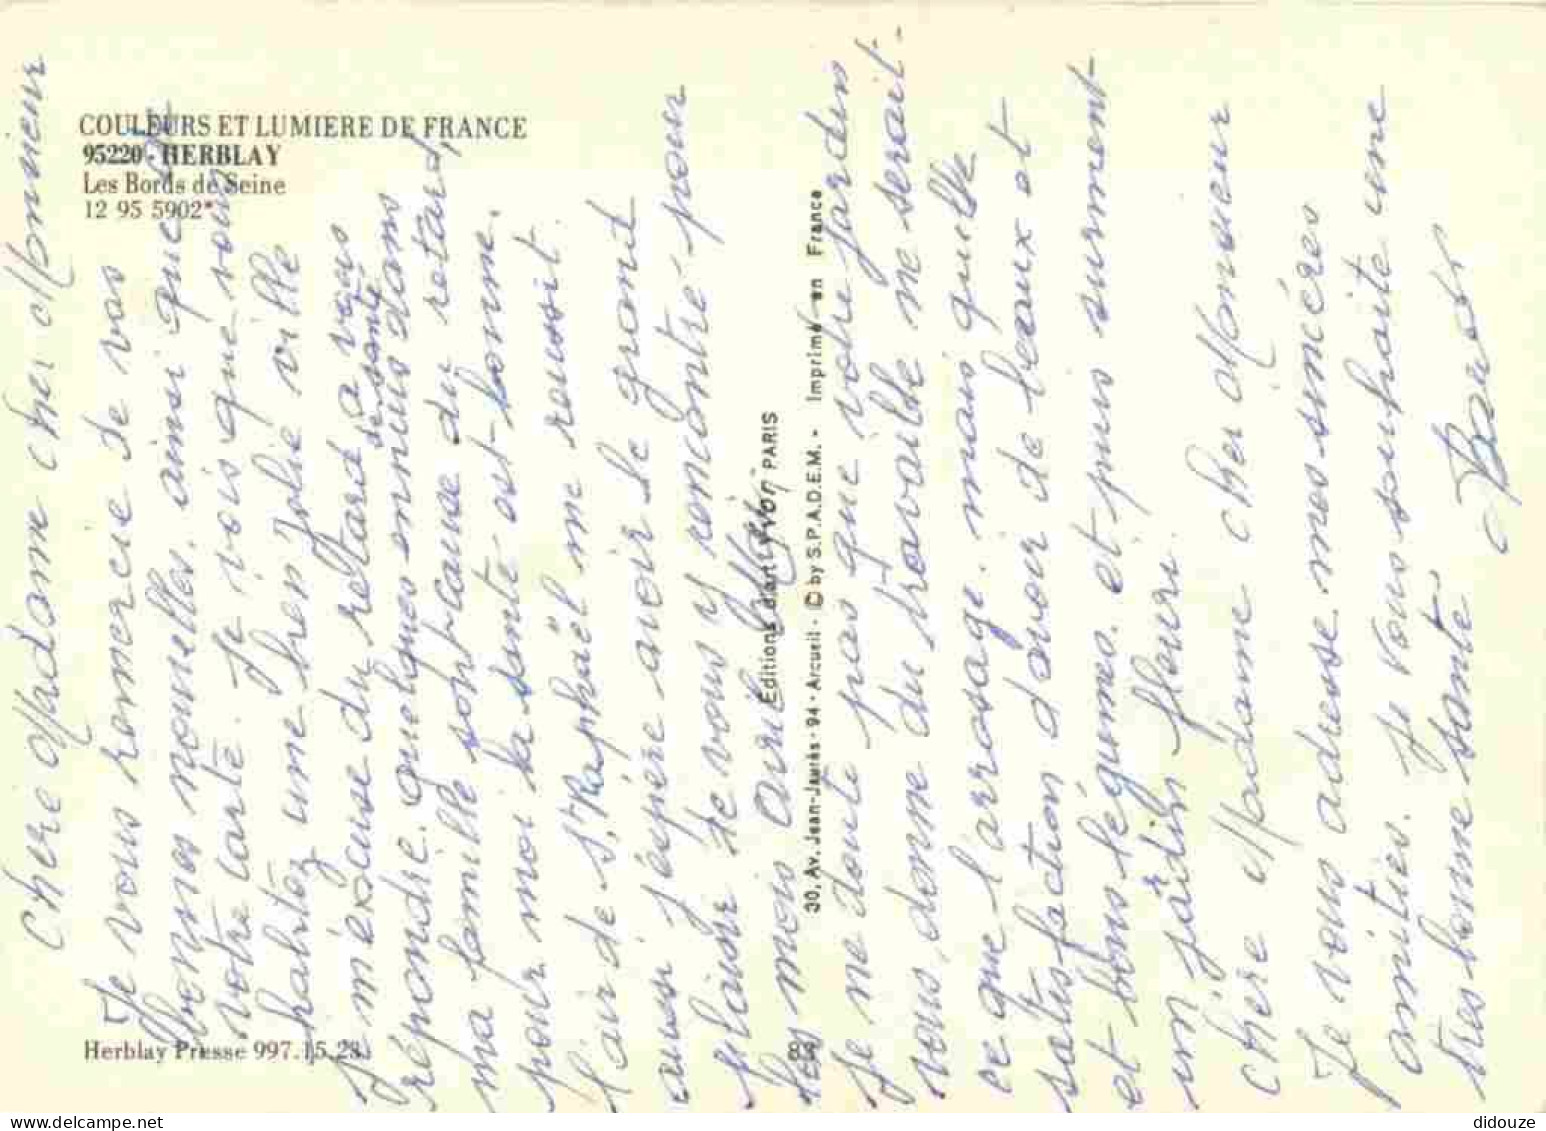 COULEURS ET LUMIERE DE FRANCE
95220 - HERBLAY
Les Bords de Seine
12 95 5902*
Herblay Presse 997.15.23.
Editions d'art YVON PARIS
30, Av. Jean-Jaurès - 94 - Arcueil - © by S.P.A.D.E.M. - Imprimé en France
Chere Madame cher Monsieur
Je vous remercie de vos
bonnes nouvelles. ainsi que de
votre carte. Je vois que vous
habitez une bien Jolie ville
Je m'excuse du retard a vous
répondre. quelques ennuis de santé dans
ma famille sont cause du retard,
pour moi la santé est bonne.
l'air de St Raphaël me reussit.
aussi j'espère avoir le grand
plaisir de vous y rencontré pour
le mois
Je me doute pas que votre jardin
vous donne du travaille ne serait-
ce que l'arrosage. mais quelle
satisfaction d'avoir de beaux et
et bons légumes. et puis surment
un jardin fleuri.
Chere Madame cher Monsieur
Je vous adresse mes sincéres
amitiés. Je vous souhaite une
tres bonne santé